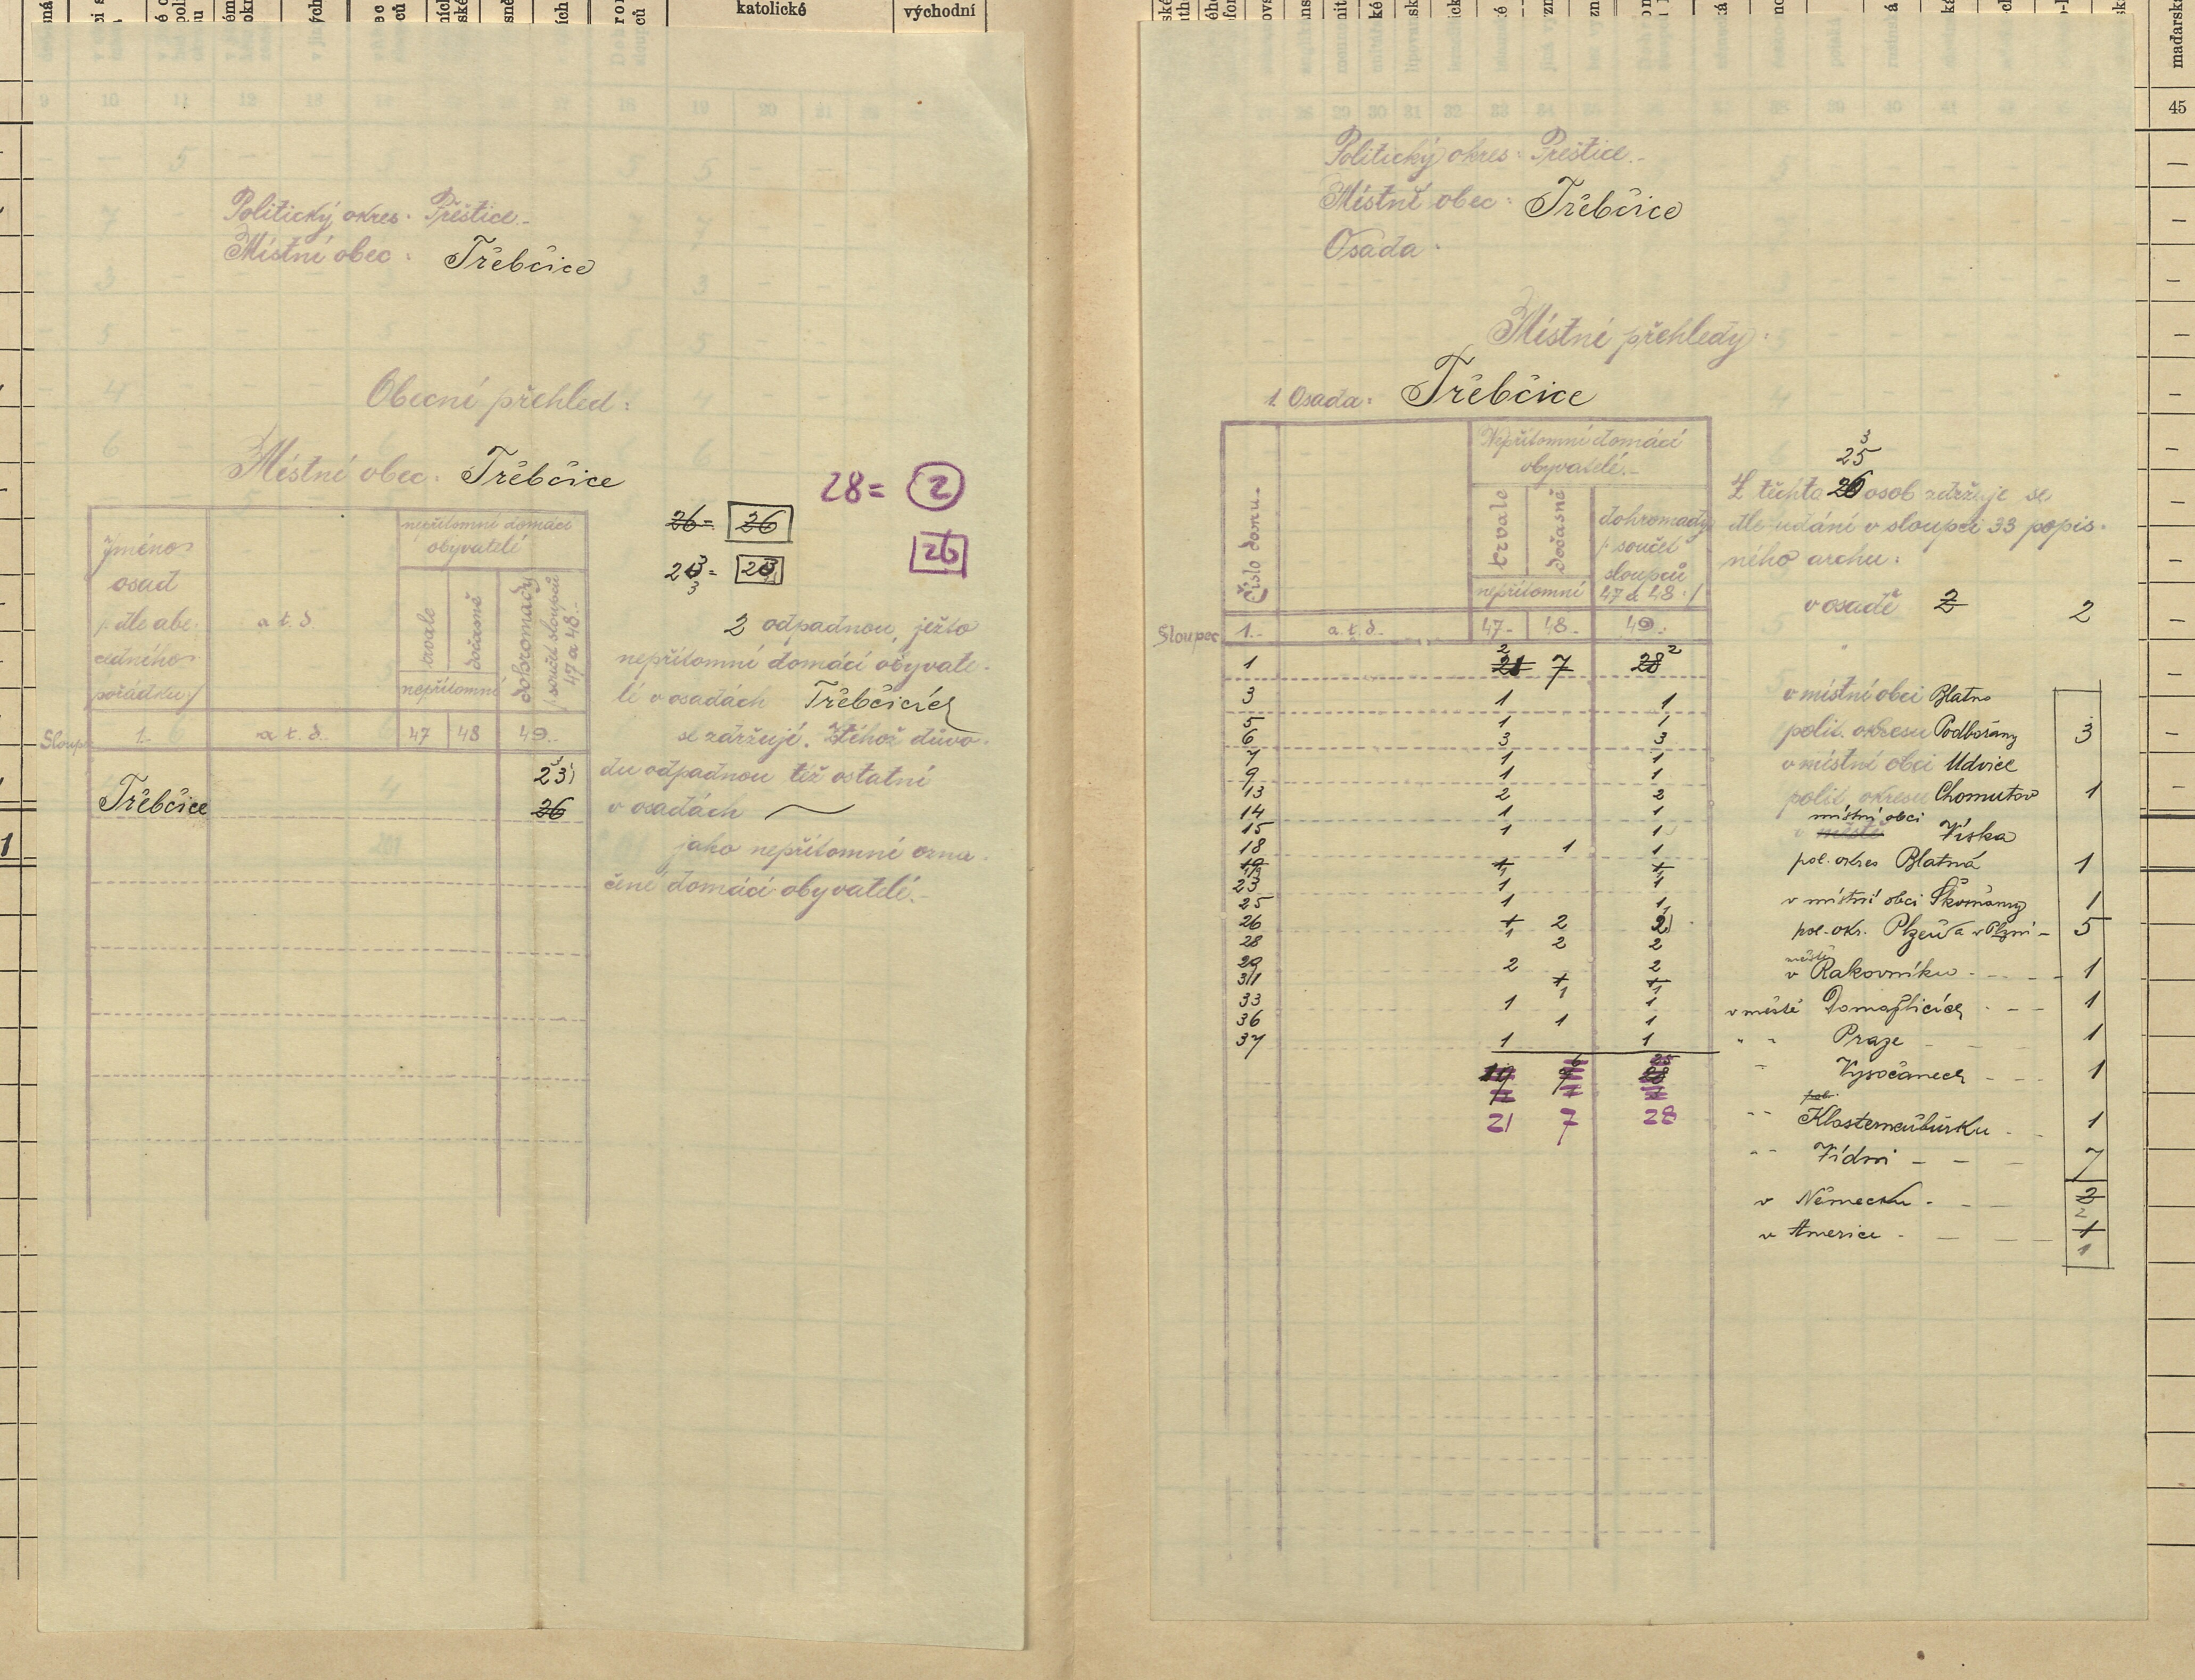 katolické
východní
Politický okres: Přeštice.-
Místní obec: Třebčice
Obecní přehled:
Místní obec: Třebčice
28 = 2
26 = 26
26
Jméno
osad
/: dle abe-
cedního
pořádku:/
a t. d.
nepřítomní domácí
obyvatelé
trvale
dočasně
nepřítomní
dohromady
/: součet sloupců
47 a 48 :/
Sloupec
1.-
a t. d.
47
48
49.-
Třebčice
23
26
2 odpadnou, ježto
nepřítomní domácí obyvate-
lé v osadách Třebčicích
se zdržují. Z téhož důvo-
du odpadnou též ostatní
v osadách
jako nepřítomní ozna-
čené domácí obyvatelé.-
45
Politický okres: Přeštice.-
Místní obec: Třebčice
Osada:
Místní přehledy:
1. Osada: Třebčice
Číslo domu.
Nepřítomní domácí
obyvatelé.-
trvale
dočasně
nepřítomní
dohromady
/: součet
sloupců
47 a 48 :/
Sloupec 1.- a. t. d. 47.- 48.- 49.-
1 21 2 7 28 2
3 1 1
5 1 1
6 3 3
7 1 1
9 1 1
13 2 2
14 1 1
15 1 1
18 1 1
19 1 1
23 1 1
25 1 1
26 1 2 2
28 2 2
29 2 2
31 1 1
33 1 1
36 1 1
37 1 1
21 7 28
3
25
Z těchto 26 osob zdržuje se
dle udání v sloupci 33 popis-
ného archu:
v osadě 2 2
v místní obci Blatno
polit. okresu Podbořany 3
v místní obci Udvice
polit. okresu Chomutov 1
místní obci
v městě Víska
pol. okres Blatná 1
v místní obci Škvrňany 1
pol. okr. Plzeň a v Plzni - 5
městě
v Rakovníku - 1
v městě Domažlicích - 1
" " Praze 1
" Vysočanech - 1
pol.
" " Klosterneuburku 1
" " Vídni - 7
v Německu - 2
2
v Americe - 1
1